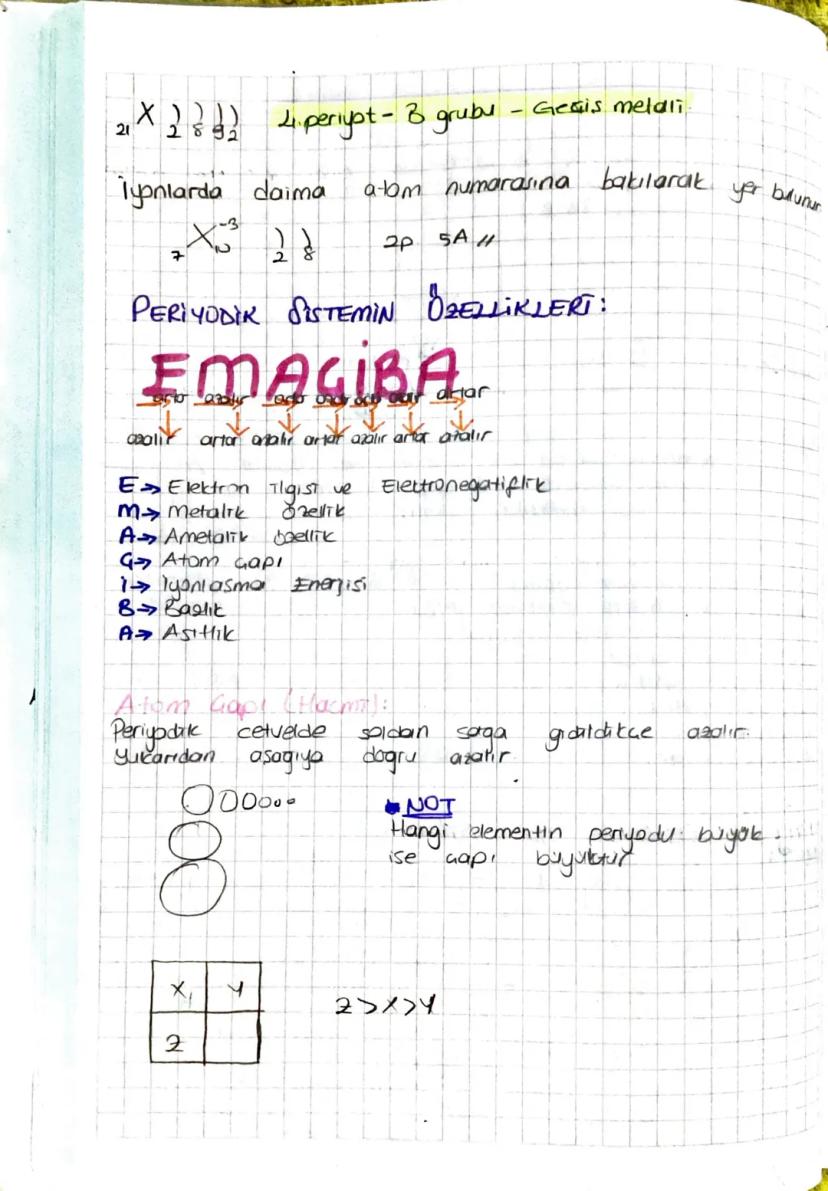 21 X ) ) ) ) 2 8 9 2 4.periyot - B grubu - Geçiş metali
İyonlarda daima atom numarasına bakılarak yer bulunur
7 X -3 N ) ) 2 8 2p 5A //
PERİYODİK SİSTEMİN ÖZELLİKLERİ:
EMAÇİBA
artar azalır artar azalır artar azalır artar
azalır artar azalır artar azalır artar azalır
E→ Elektron ilgisi ve Elektronegatiflik
M→ Metalik özellik
A→ Ametalik özellik
Ç→ Atom çapı
İ→ İyonlaşma Enerjisi
B→ Bazlık
A→ Asitlik
Atom Çapı (Hacmi):
Periyodik cetvelde soldan sağa gidildikçe azalır.
Yukarıdan aşağıya doğru azalır.
NOT
Hangi elementin periyodu büyük
ise çapı büyüktür
X, Y
Z
Z>X>Y